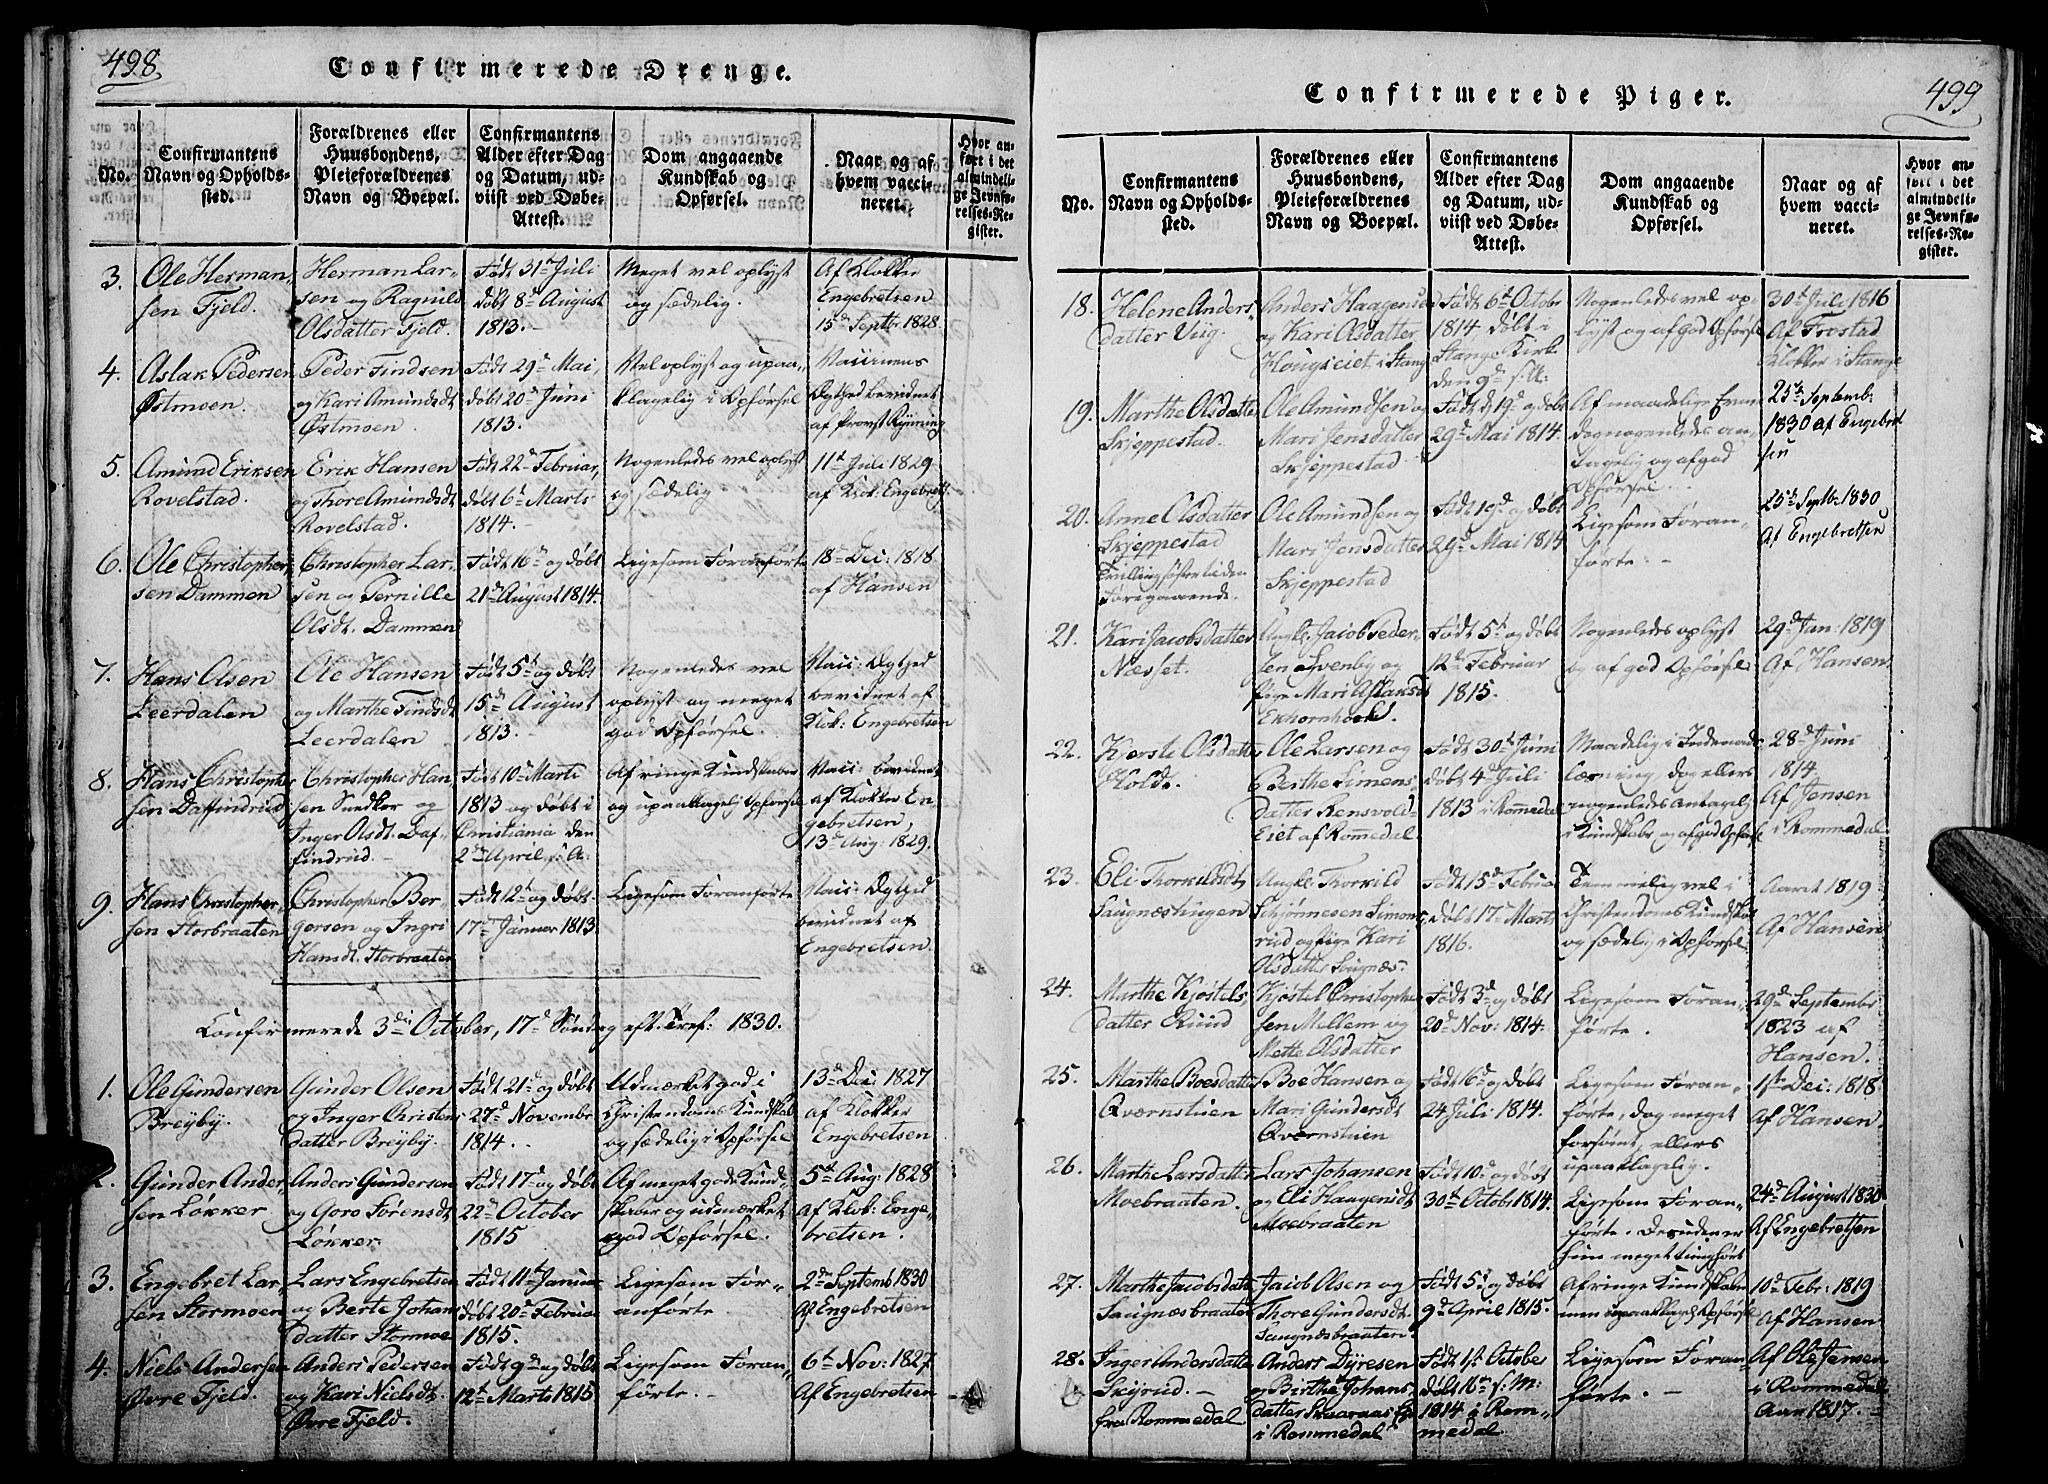 498.
Confirmerede Drenge.
No.
Confirmantens
Navn og Opholds-
sted.
Forældrenes eller
Huusbondens,
Pleieforældrenes
Navn og Boepæl.
Confirmantens
Alder efter Dag
og Datum, ud-
viist ved Døbe-
Attest.
Dom angaaende
Kundskab og
Opførsel.
Naar og af
hvem vacci-
neret.
Hvor an-
ført i det
almindeli-
ge Jevnfø-
relses-Re-
gister.
3.
Ole Herman-
sen Fjeld.
Herman Lar-
sen og Ragnild
Olsdatter Fjeld.
Født 31te Juli
døbt 8de August
1813.
Meget vel oplyst
og sædelig.
Af Klokker
Engebretsen
15de Septbr 1828.
4.
Aslak Pedersen
Østmoen.
Peder Findsen
og Kari Amundsdt
Østmoen.
Født 29de Mai,
døbt 20de Juni
1813.
Vel oplyst og upaa-
klagelig i Opførsel
Vaccinens
Ægthed bevidnet
af Provst Rynning
5.
Amund Eriksen
Rovelstad.
Erik Hansen
og Thore Amundsdt
Rovelstad.
Født 22de Februar,
døbt 6te Marts
1814.
Nogenledes vel oplyst
og sædelig
11te Juli 1829
af Klok: Engebrets.
6.
Ole Christopher-
sen Dammen
Christopher Lar-
sen og Pernille
Olsdt. Dammen
Født 16de og døbt
21de August 1814.
Ligesom Foranførte
18de Dec: 1818
af Hansen
7.
Hans Olsen
Leerdalen
Ole Hansen
og Marthe Findsdt
Leerdalen
Født 5te og døbt
15de August
1813.
Nogenledes vel
oplyst og meget
god Opførsel.
Vacc: Ægthed
bevidnet af
Klok: Engebretsen
8.
Hans Christopher
sen Daffindrud
Christopher Han-
sen Snedker og
Inger Olsdt. Daf-
findrud.
Født 10de Marts
1813 og døbt i
Christiania den
2den April s: A:
Af ringe Kundskaber
og upaaklagelig Opførsel
Vacc: bevidnet
af Klokker En-
gebretsen,
13de Aug: 1829.
9.
Hans Christopher-
sen Storbraaten
Christopher Bor-
gersen og Ingri
Hansdt. Storbraaten
Født 12te og døbt
17de Januar 1813
Ligesom Foranførte
Vacc: Ægthed
bevidnet af
Engebretsen.
Confirmerede 3die October, 17de Søndag eft: Tref: 1830.
1.
Ole Gundersen
Breÿby.
Gunder Olsen
og Inger Christens
datter Breÿby.
Født 21de og døbt
27de Novembr
1814.
Udmærket god i
Christendoms Kundskab
og sædelig i Opførsel
13de Dec: 1827
af Klokker
Engebretsen
2.
Gunder Ander-
sen Løkker
Anders Gundersen
og Goro Sørensdt
Løkker
Født 17de og døbt
22de October
1815
Af meget gode Kund-
skaber og udmærket
god Opførsel.
5te Aug: 1828
af Klok: Enge-
bretsen.
3.
Engebret Lar-
sen Stormoen
Lars Engebretsen
og Berte Johans
datter Stormoe
Født 11te Januar
døbt 20de Februar
1815.
Ligesom For-
anførte
2den Septemb 1830
af Engebretsen
4.
Niels Andersen
Øvre Fjeld.
Anders Pedersen
og Kari Nielsdt
Øvre Fjeld.
Født 9de og døbt
12te Marts 1815
Ligesom Foran-
førte.
6te Nov: 1827
Af Engebretsen
499
Confirmerede Piger.
No.
Confirmantens
Navn og Opholds-
sted.
Forældrenes eller
Huusbondens,
Pleieforældrenes
Navn og Boepæl.
Confirmantens
Alder efter Dag
og Datum, ud-
viist ved Døbe-
Attest.
Dom angaaende
Kundskab og
Opførsel.
Naar og af
hvem vacci-
neret.
Hvor an-
ført i det
almindeli-
ge Jevnfø-
relses-Re-
gister.
18.
Helene Anders-
datter Viig.
Anders Haagense
og Kari Olsdatter
Hougseiet i Stang
Født 6te Octobr
1814 døbt i
Stange Kirke
den 9de s: A:
Nogenledes vel op-
lyst og af god Opførsel
30te Juli 1816
Af Frostad
Klokker i Stange
19.
Marthe Olsdatter
Skjeppestad.
Ole Amundsen og
Mari Jensdatter
Skjeppestad
Født d 19de og døbt
29de Mai 1814.
Af maadelige Evner
dog nogenledes an-
tagelig og af god
Opførsel.
25de Septemb:
1830 af Engebret
sen
20.
Anne Olsdatter
Skjeppestad
Tvillingsøster til den
Foregaaende.
Ole Amundsen og
Mari Jensdatter
Skjeppestad
Født 19de og døbt
29de Mai 1814
Ligesom Foran-
førte.
25de Septb: 1830
Af Engebretsen
21.
Kari Jacobsdatter
Næsset.
Ungk: Jacob Peder-
sen Svenby og
Pige Mari Aslaksdt
Ekhornhoel.
Født 5te og døbt
12de Februar
1815.
Nogenledes oplyst
og af god Opførsel
29de Jan: 1819
Af Hansen.
22.
Kjerste Olsdatter
Hold.
Ole Larsen og
Berthe Simens-
datter Rensvold-
Eiet af Rommedal.
Født 30te Juni
døbt 4de Juli
1813 i Rommedal
Maadelig i Indenads
læsning, dog ellers
nogenledes Antagelig
i Kundskab og af god Opførsel
28de Juni
1814
Af Jensen
i Rommedal
23.
Eli Thorkildsdt.
Saugnæstuen
Ungk: Thorkild
Schjønnesen Simons
riud og Pige Kari
Olsdatter Saugnæs.
Født 15de Februa
døbt 17de Marts
1816.
Temmelig vel i
Christendoms Kundskab
og sædelig i Opførsel
Aaret 1819
Af Hansen
24.
Marthe Kjøstels-
datter Ruud
Kjøstel Christopher
sen Mellem og
Mette Olsdatter
Født 3de og døbt
20de Nov: 1814.
Ligesom Foran-
førte.
29de September
1823 af
Hansen.
25.
Marthe Boesdatter
Qværnstuen
Boe Hansen og
Mari Gundersdt
Qværnstuen
Født 6te og døbt
24 Juli 1814.
Ligesom Foran-
førte, dog meget
forsømt, ellers
upaaklagelig.
1ste Dec: 1818
Af Hansen.
26.
Marthe Larsdatter
Moebraaten.
Lars Johansen
og Eli Haagensdt
Moebraaten
Født 10de og døbt
30te Octobr 1814.
Ligesom Foran-
førte. Desuden er
hun meget tunghørt
24de August 1830
Af Engebretsen
27.
Marthe Jacobsdatter
Saugnæsbraaten
Jacob Olsen og
Thore Gundersdt.
Saugnæsbraaten
Født 5te og døbt
9de April 1815.
Af ringe Kundskaber
men upaaklagelig Opførsel
10de Febr: 1819
Af Hansen
28.
Inger Andersdatter
Skyrud.
fra Rommedal
Anders Dyresen
og Birthe Johans-
datter
i Rommedal
Født 1ste October
døbt 16de s: M:
1814 i Rom-
medal.
Ligesom Foran-
førte.
Af Ole Jensen
i Rommedal
Aar 1817.